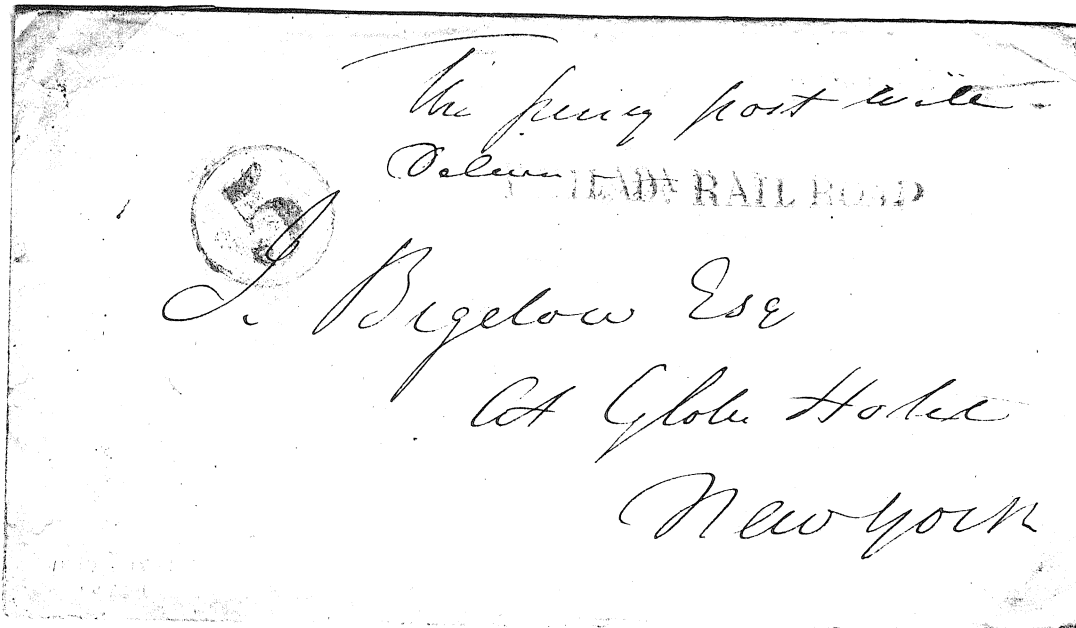 The penny post will
Deliver
5
RAIL ROAD
L. Bigelow Esq
At Globe Hotel
New York